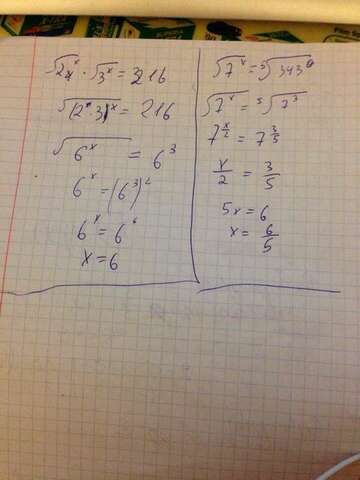 √2^x · √3^x = 216
√(2·3)^x = 216
√6^x = 6^3
6^x = (6^3)^2
6^x = 6^6
x = 6
√7^x = ⁵√343
√7^x = ⁵√7^3
7^(x/2) = 7^(3/5)
x/2 = 3/5
5x = 6
x = 6/5